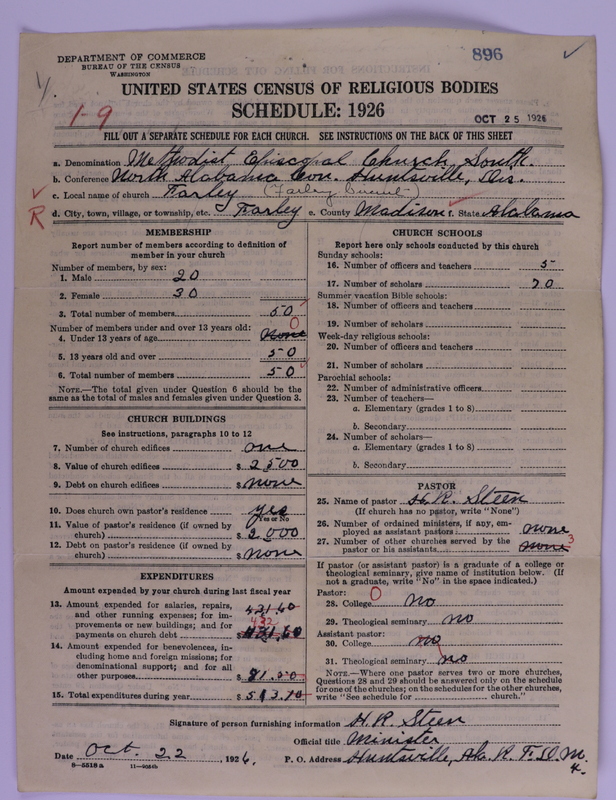 896
DEPARTMENT OF COMMERCE
BUREAU OF THE CENSUS
WASHINGTON
1-9
UNITED STATES CENSUS OF RELIGIOUS BODIES
SCHEDULE: 1926
OCT 25 1926
FILL OUT A SEPARATE SCHEDULE FOR EACH CHURCH. SEE INSTRUCTIONS ON THE BACK OF THIS SHEET
a. Denomination Methodist Episcopal Church, South.
b. Conference North Alabama Con. Huntsville, Dis.
c. Local name of church Farley (Farley Circuit)
R d. City, town, village, or township, etc. Farley e. County Madison f. State Alabama
MEMBERSHIP
Report number of members according to definition of
member in your church
Number of members, by sex:
1. Male 20
2. Female 30
3. Total number of members 50
Number of members under and over 13 years old:
4. Under 13 years of age none 0
5. 13 years old and over 50
6. Total number of members 50
NOTE.—The total given under Question 6 should be the
same as the total of males and females given under Question 3.
CHURCH BUILDINGS
See instructions, paragraphs 10 to 12
7. Number of church edifices one
8. Value of church edifices $ 2500
9. Debt on church edifices $ none
10. Does church own pastor's residence yes
Yes or No
11. Value of pastor's residence (if owned by
church) $ 2,000
12. Debt on pastor's residence (if owned by
church) $ none
EXPENDITURES
Amount expended by your church during last fiscal year
13. Amount expended for salaries, repairs,
and other running expenses; for im-
provements or new buildings; and for
payments on church debt 431.60 432
14. Amount expended for benevolences,
including home and foreign missions; for
denominational support; and for all
other purposes $ 81.50
15. Total expenditures during year $ 513.10
CHURCH SCHOOLS
Report here only schools conducted by this church
Sunday schools:
16. Number of officers and teachers 5
17. Number of scholars 70
Summer vacation Bible schools:
18. Number of officers and teachers
19. Number of scholars
Week-day religious schools:
20. Number of officers and teachers
21. Number of scholars
Parochial schools:
22. Number of administrative officers
23. Number of teachers—
a. Elementary (grades 1 to 8)
b. Secondary
24. Number of scholars—
a. Elementary (grades 1 to 8)
b. Secondary
PASTOR
25. Name of pastor H. R. Steen
(If church has no pastor, write "None")
26. Number of ordained ministers, if any, em-
ployed as assistant pastors none
27. Number of other churches served by the
pastor or his assistants none 3
If pastor (or assistant pastor) is a graduate of a college or
theological seminary, give name of institution below. (If
not a graduate, write "No" in the space indicated.)
Pastor: 0
28. College no
29. Theological seminary no
Assistant pastor:
30. College no
31. Theological seminary no
NOTE.—Where one pastor serves two or more churches,
Questions 28 and 29 should be answered only on the schedule
for one of the churches; on the schedules for the other churches,
write "See schedule for church."
Signature of person furnishing information H. R. Steen
Official title Minister
Date Oct. 22, 1926. P. O. Address Huntsville, Ala. R.F.D. no.
4.
8—5518a 11—9054b